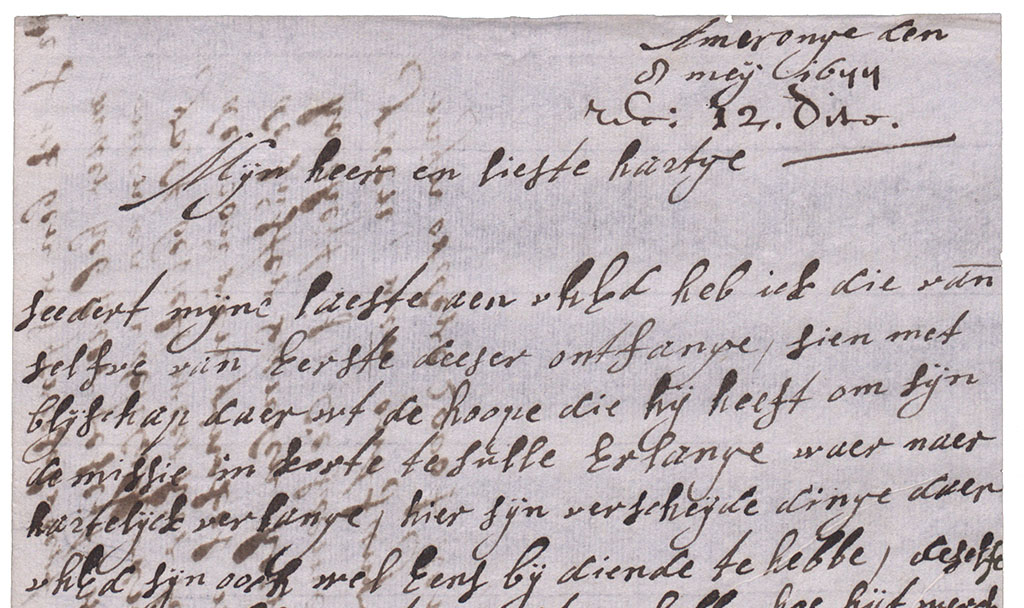 Ameronge den
8 meij 1677
Rec: 12. Dito.
Mijn heer en lieste hartge
seedert mijne laeste aen uhEd heb ick die van
selfve van Eerste deeser ontfange, sien met
blijschap daer wt de hoope die hij heeft om sijn
demissie in korte te sulle Erlange waer naer
hartelijck verlange, hier sijn verscheijde dinge daer
uhEd sijn ooch wel Eens bij diende te hebbe, deselfe
hoe hijt werd